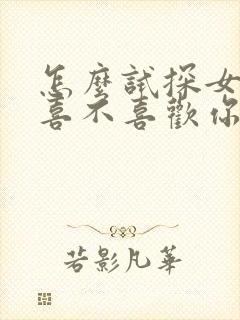 怎麼試探女
喜不喜歡你
若影凡華